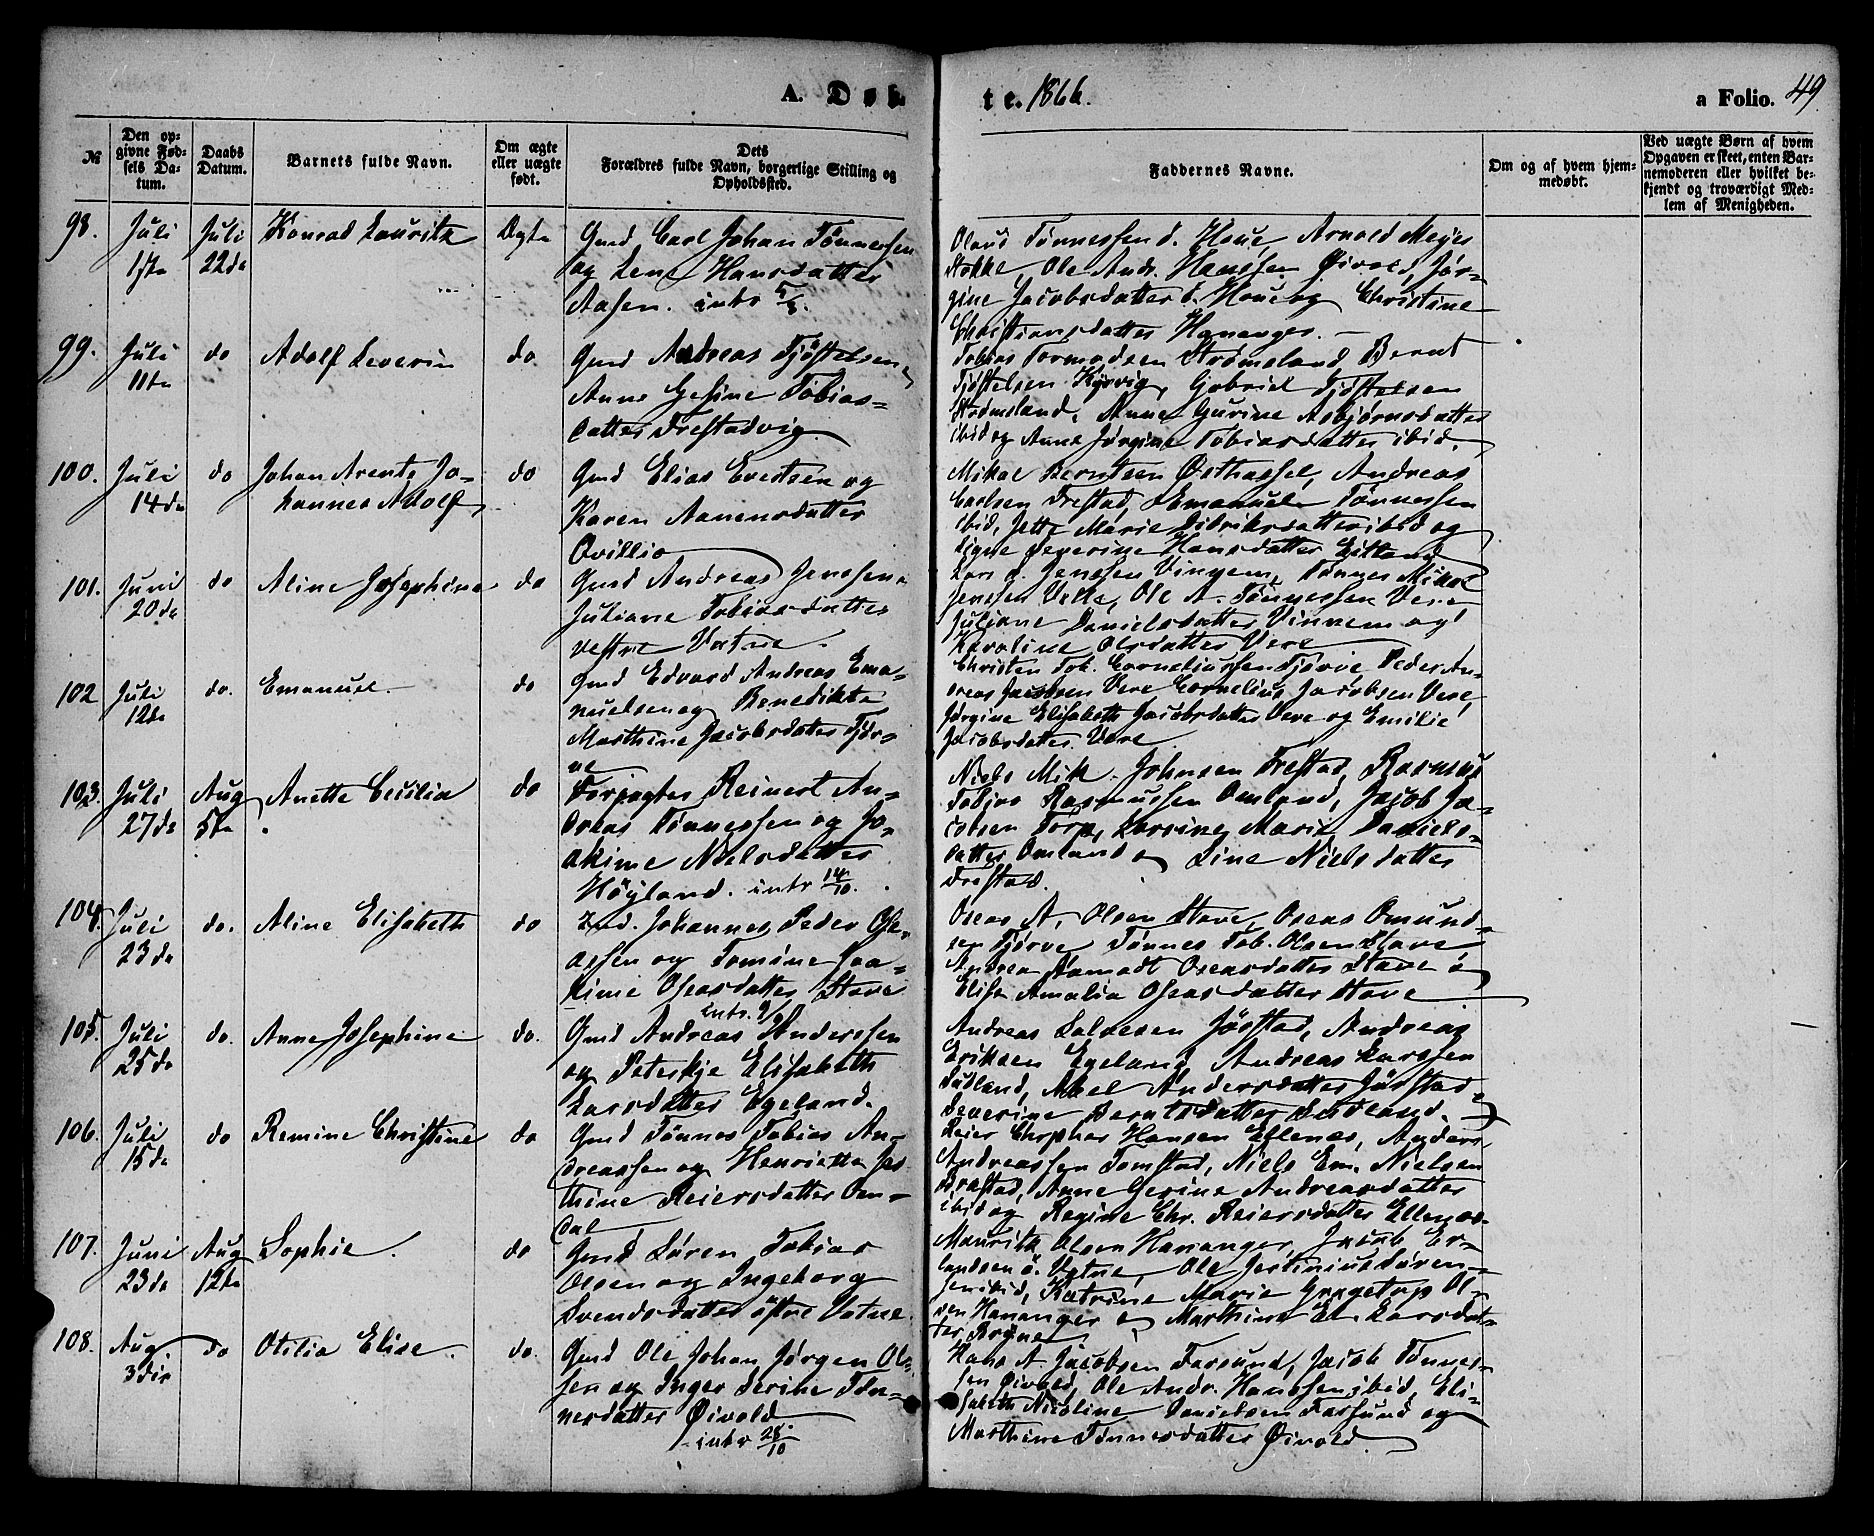 A. Døb-
te. 1866.
a Folio. 49
№
Den op-
givne Fød-
sels Da-
tum.
Daabs
Datum.
Barnets fulde Navn.
Om ægte
eller uægte
født.
Dets
Forældres fulde Navn, borgerlige Stilling og
Opholdssted.
Faddernes Navne.
Om og af hvem hjem-
medøbt.
Ved uægte Børn af hvem
Opgaven er skeet, enten Bar-
nemoderen eller hvilket be-
kjendt og troværdigt Med-
lem af Menigheden.
98. Juli 1ste Juli 22de Konrad Lauritz Ægte
Gmd Carl Johan Tønnessen
og Lene Hansdatter
Aasen. intr 5/8.
Olaus Tønnessen d. Houe Arnold Meyer
Stokke, Ole Andr. Hanssen Øivold, Jør-
gine Jacobsdatter d. Houe og Christine
Christiansdatter Hananger.
99. Juli 11te do Adolf Severin do
Gmd Andreas Tjøstelsen
Anne Gesine Tobias-
datter Frestadvig
Tobias Tormodsen Strømsland, Bernt
Tjøstelsen Kjørvig, Gabriel Tjøstelsen
Strømsland, Anne Gurine Asbjørnsdatter
ibid og Anne Jørgine Tobiasdatter ibid.
100. Juli 14de do Johan Arents Jo-
hannes Adolf do
Gmd Elias Evertsen og
Karen Aanensdatter
Ovillio
Mikal Berntsen Østhassel, Andreas
Carlsen Frestad, Emanuel Tønnessen
ibid, Jette Marie Didriksdatter ibid og
Signe Severine Hansdatter Eitland
101. Juni 20de do Aline Josephine do
Gmd Andreas Jenssen
Juliane Tobiasdatter
vestre Vatne.
Lars A. Jenssen Vinnem, Tønnes Mikal
Jenssen Velle, Ole A. Tønnessen Vere
Juliane Danielsdatter Vinnem og
Karoline Olsdatter Vere
102 Juli 12de do. Emanuel do
Gmd Edvard Andreas Ema-
nuelsen og Benedikte
Marthine Jacobsdatter Tjør-
ve
Christen Tob. Corneliussen Tjørve, Peder An-
dreas Jacobsen Vere, Cornelius Jacobsen Vere,
Jørgine Elisabeth Jacobsdatter Vere og Emilie
Jacobsdatter Vere
103. Juli 27de Aug 5te Anette Cecilia do
Forpagter Reinert An-
dreas Tønnessen og Jo-
akime Nielsdatter
Høyland. intr 14/10.
Niels Mik. Johnsen Frestad, Rasmus
Tobias Rasmussen Omland, Jacob Ja-
cobsen Torp, Larsine Marie Daniels-
datter Omland og Line Nielsdatter
Frestad.
104. Juli 23de do. Aline Elisabeth do
Johannes Peder Ose-
assen og Tomine Joa-
kime Oseasdatter Stave
intr. 9/9
Oseas A. Olsen Stave, Oseas Omund-
sen Tjørve Tønnes Tob. Olsen Stave
Andrea Oseasdatter Stave
Elise Amalia Oseasdatter Stave
105. Juli 25de do. Anne Josephine do.
Gmd Andreas Anderssen
og Peterkje Elisabeth
Larsdatter Egeland.
Andreas Salvesen Jørstad, Andreas
Eriksen Egeland, Andreas Larssen
Sudland, Abel Andersdatter Jørstad
Severine Berntsdatter Sudland.
106. Juli 15de do Remine Christine do
Gmd Tønnes Tobias An-
dreassen og Henriette Jos
thine Reiersdatter Om-
dal
Reier Chrphr Hansen Ellenes, Anders
Andreassen Tomstad, Niels Em. Nielsen
Brastad, Anne Gesine Andreasdatter
ibid og Regine Chr. Reiersdatter Ellenes.
107. Juni 23de Aug 12te Sophie. do
Gmd Søren Tobias
Olsen og Ingeborg
Svendsdatter østre Vatne.
Mauritz Olsen Hananger, Jacob Er-
landsen ø. Vatne, Ole Jertinius Søren-
sen ibid, Katrine Marie Ol-
sen Hananger og Marthine El. Larsdat-
ter Bryne
108. Aug. 3die do Otilia Elise. do.
Gmd Ole Johan Jørgen Ol-
sen og Inger Serine Tøn-
nesdatter Øivold
intr 28/10
Hans A. Jacobsen Farsund, Jacob Tønnes-
sen Øivold, Ole Andr. Hanssen ibid, Eli-
sabeth Nicoline Danielsen Farsund og
Marthine Tønnesdatter Øivold.